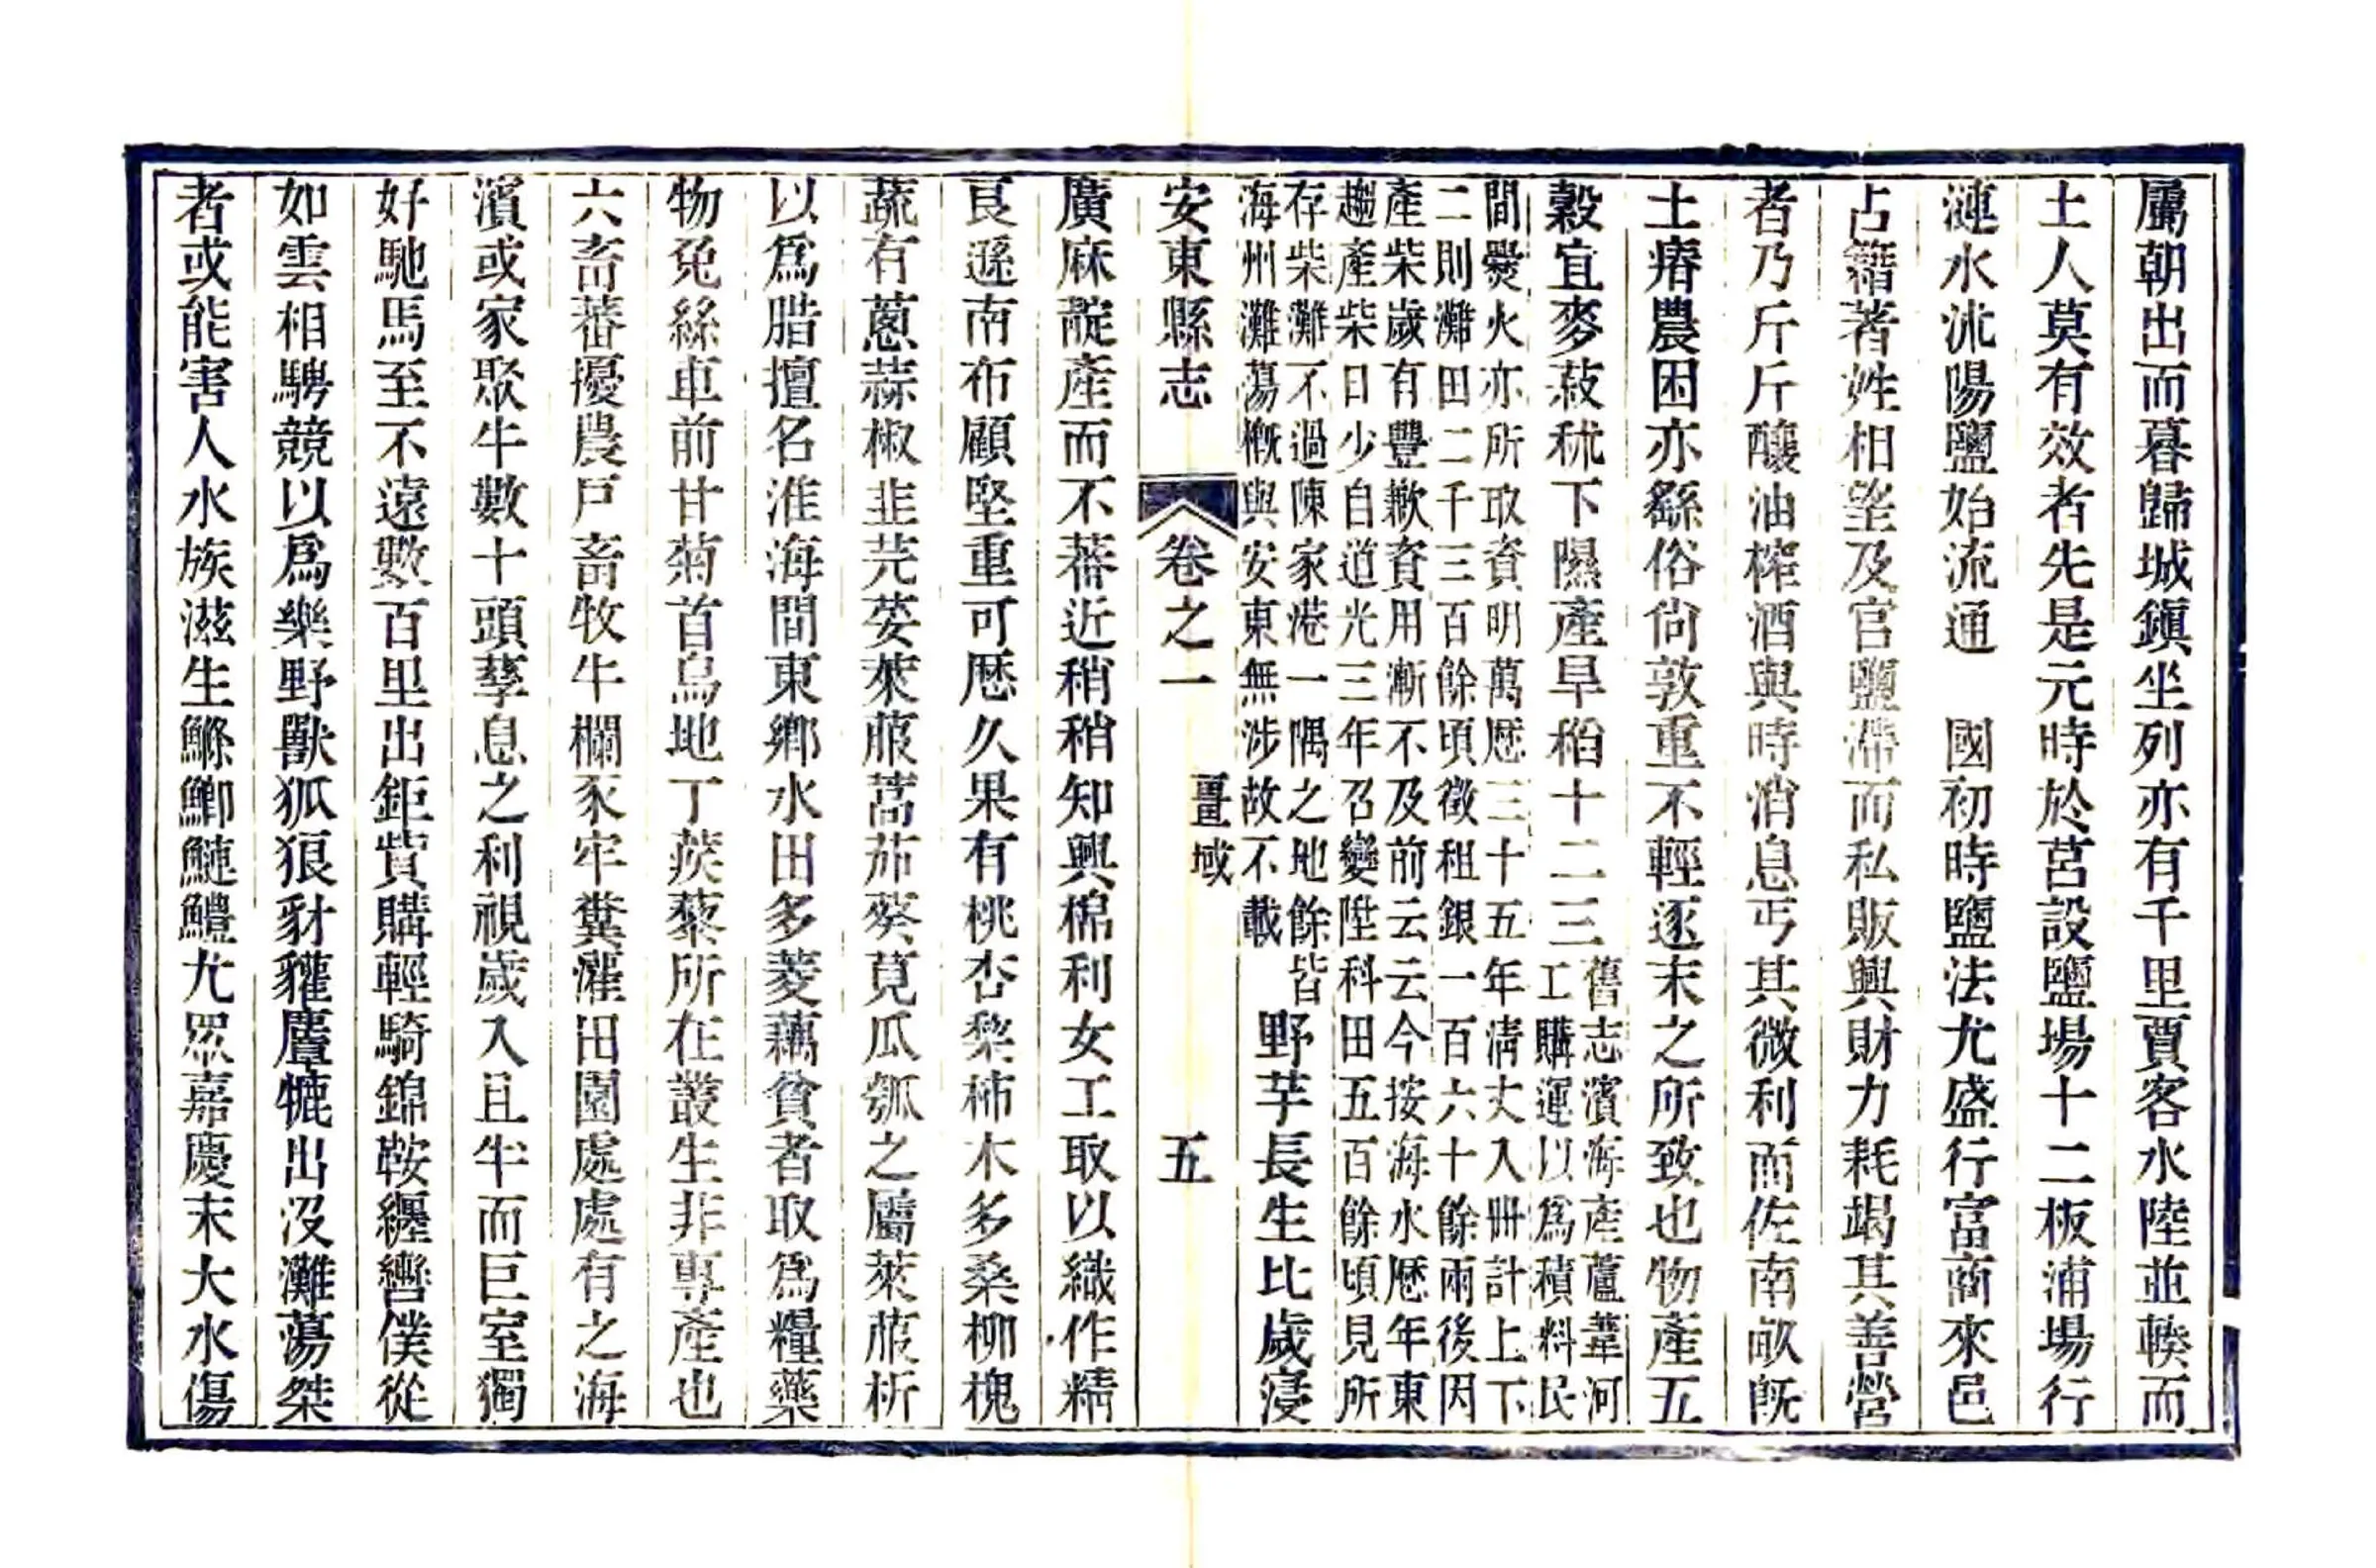 屬朝出而暮歸城鎮坐列亦有千里賈客水陸並輳而
土人莫有效者先是元時於莒設鹽場十二板浦場行
漣水沭陽鹽始流通　國初時鹽法尤盛行富商來邑
占籍著姓相望及官鹽滯而私販興財力耗竭其善營
者乃斤斤釀油榨酒與時消息丐其微利而佐南畝旣
土瘠農困亦繇俗尙敦重不輕逐末之所致也物產五
穀宜麥菽秫下隰產旱稻十二三
舊志濱海產蘆葦河
工購運以爲積料民
間爨火亦所取資明萬厯三十五年淸丈入冊計上下
二則灘田二千三百餘頃徵租銀一百六十餘兩後因
產柴歲有豐歉資用漸不及前云云今按海水厯年東
趨產柴日少自道光三年召變陞科田五百餘頃見所
存柴灘不過陳家港一隅之地餘皆
海州灘蕩槪與安東無涉故不載
野芋長生比歲寖
安東縣志　卷之一　畺域　五
廣麻靛產而不蕃近稍稍知興棉利女工取以織作精
良遜南布顧堅重可厯久果有桃杏棃柿木多桑柳槐
蔬有蔥蒜椒韭芫荽萊菔蒿茄葵莧瓜瓠之屬萊菔析
以爲腊擅名淮海間東鄉水田多菱藕貧者取爲糧藥
物兔絲車前甘菊首烏地丁蒺藜所在叢生非專產也
六畜蕃擾農戸畜牧牛欄豕牢糞灌田園處處有之海
濱或家聚牛數十頭孳息之利視歲入且半而巨室獨
好馳馬至不遠數百里出鉅貲購輕騎錦鞍纏轡僕從
如雲相騁競以爲樂野獸狐狼豺貛麞㹠出沒灘蕩桀
者或能害人水族滋生鰷鯽鰱鱧尤眾嘉慶末大水傷